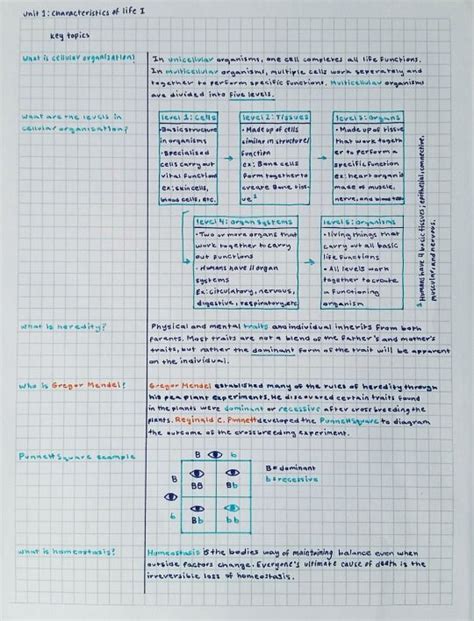 Unit 1: Characteristics of life I
Key topics
What is cellular organisation?
In unicellular organisms, one cell completes all life functions.
In multicellular organisms, multiple cells work seperately and
together to perform specific functions. Multicellular organisms
are divided into five levels.
What are the levels in
cellular organisation?
level 1: Cells
• Basic structure
in organisms
• Specialised
cells carry out
vital functions
Ex: skin cells,
blood cells, etc.
level 2: Tissues
• Made up of cells
similar in structure/
function
Ex: Bone cells
form together to
create Bone tis-
sue¹
level 3: Organs
• Made up of tissue
that work togeth-
er to perform a
specific function
ex: heart organ is
made of muscle,
nerve, and blood
level 4: organ systems
• Two or more organs that
work together to carry
out functions
• Humans have 11 organ
systems
Ex: circulatory, nervous,
digestive, respiratory, etc.
level 5: organisms
• living things that
carry out all basic
life functions
• All levels work
together to create
a functioning
organism
¹ Humans have 4 basic tissues; epithelial, connective,
muscular, and nervous.
What is heredity?
Physical and mental traits and individual inherits from both
parents. Most traits are not a blend of the father's and mother's
traits, but rather the dominant form of the trait will be apparent
on the individual.
Who is Gregor Mendel?
Gregor Mendel established many of the rules of heredity through
his pea plant experiments. He discovered certain traits found
in the plants were dominant or recessive after cross breeding the
plants. Reginald C. Punnett developed the Punnett Square to diagram
the outcome of the crossbreeding experiment.
Punnett Square example
B b
B BB Bb
b Bb bb
B = dominant
b = recessive
What is homeostasis?
Homeostasis is the bodies way of maintaining balance even when
outside factors change. Everyone's ultimate cause of death is the
irreversible loss of homeostasis.